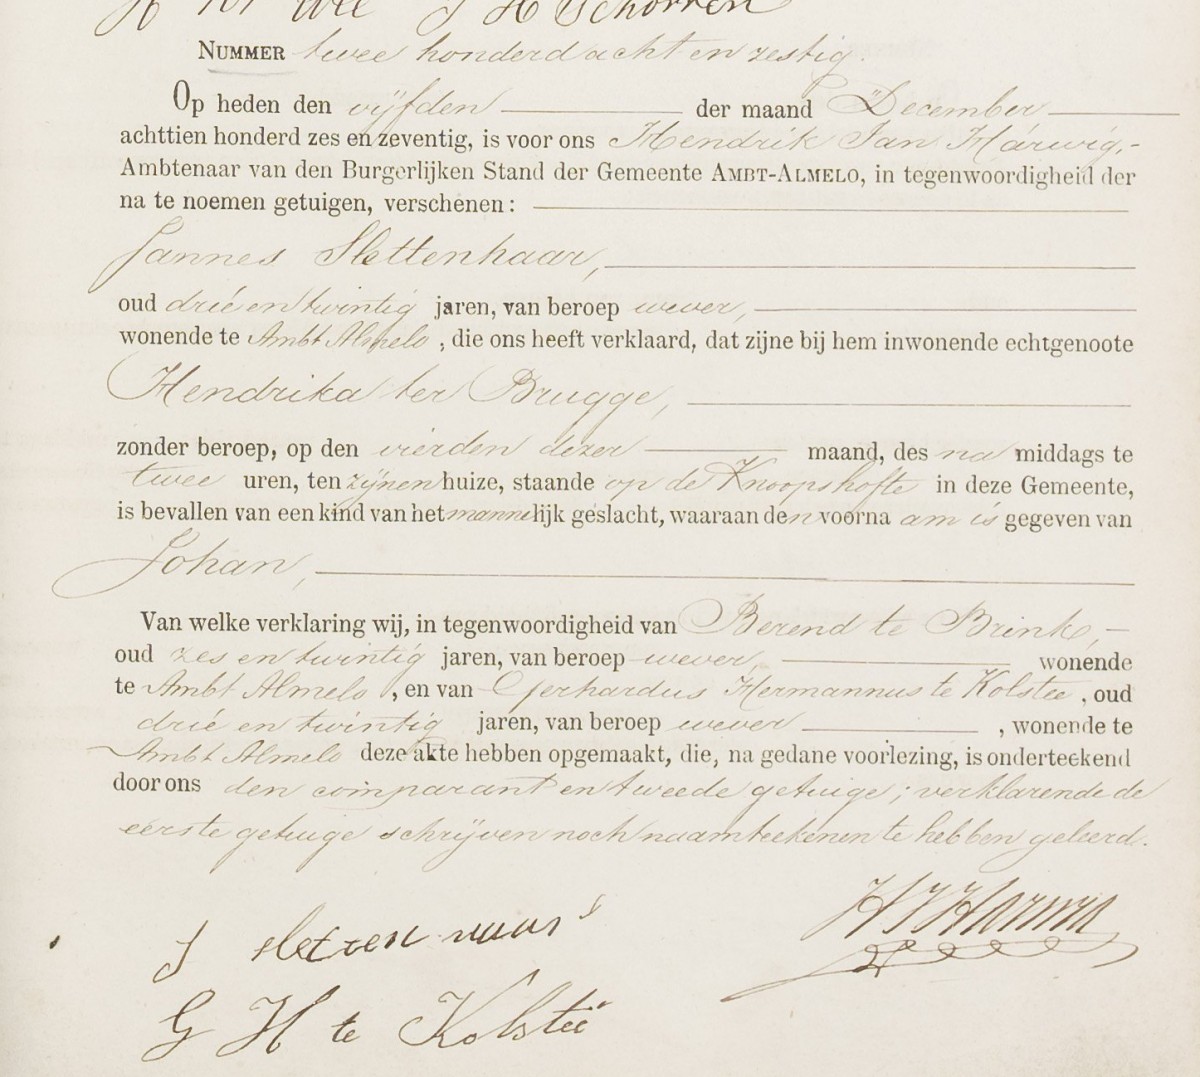 J H Schorren
NUMMER twee honderd acht en zestig.
Op heden den vijfden der maand December
achttien honderd zes en zeventig, is voor ons Hendrik Jan Harwig,
Ambtenaar van den Burgerlijken Stand der Gemeente AMBT-ALMELO, in tegenwoordigheid der
na te noemen getuigen, verschenen:
Jannes Slettenhaar,
oud drie en twintig jaren, van beroep wever,
wonende te Ambt Almelo, die ons heeft verklaard, dat zijne bij hem inwonende echtgenoote
Hendrika ter Brugge,
zonder beroep, op den vierden dezer maand, des na middags te
twee uren, ten zijnen huize, staande op de Knoopshofte in deze Gemeente,
is bevallen van een kind van het mannelijk geslacht, waaraan den voornaam is gegeven van
Johan,
Van welke verklaring wij, in tegenwoordigheid van Berend te Brink,
oud zes en twintig jaren, van beroep wever, wonende
te Ambt Almelo, en van Gerhardus Hermannus te Kolstee, oud
drie en twintig jaren, van beroep wever, wonende te
Ambt Almelo deze akte hebben opgemaakt, die, na gedane voorlezing, is onderteekend
door ons den comparant en tweede getuige; verklarende de
eerste getuige schrijven noch naamteekenen te hebben geleerd.
J
G H te Kolstee